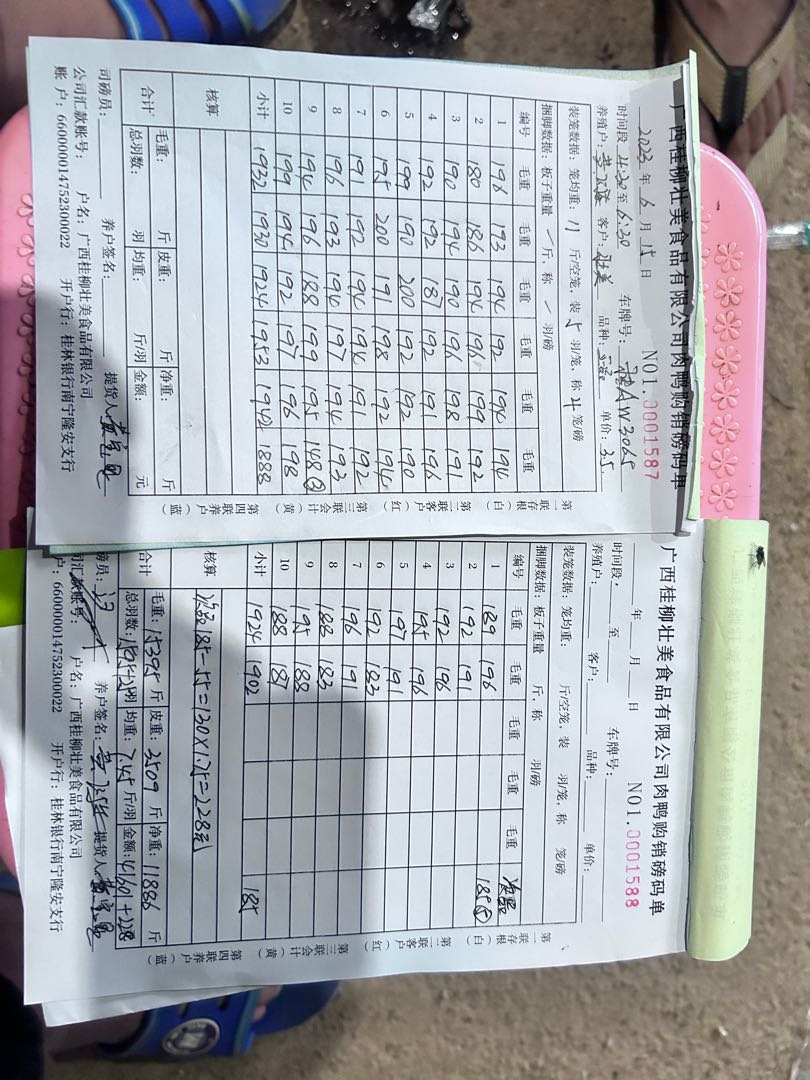 广西桂柳壮美食品有限公司肉鸭购销磅码单
2023年6月15日 NO1.0001587
时间段 4:30至6:30 车牌号: AW3065
养殖户: 客户:壮美 品种: 单价:3.5
装笼数据:笼均重:11 斤/空笼,装5羽/笼,称4笼/磅
捆脚数据:板子重量 \ 斤,称 \ 羽/磅
编号 毛重 毛重 毛重 毛重 毛重 毛重
1 196 193 194 192 194 194
2 180 186 194 196 199 192
3 190 194 190 196 198 191
4 192 192 187 192 191 196
5 199 190 200 192 192 190
6 195 200 191 198 192 194
7 191 192 194 194 191 192
8 196 193 194 197 194 193
9 194 196 188 199 195 148
10 199 194 192 197 196 198
小计 1932 1930 1924 1953 1942 1888
核算
合计 毛重: 斤 皮重: 斤 净重: 斤
总羽数: 羽 均重: 斤/羽 金额: 元
司磅员: 养户签名: 提货人:
公司汇款账号: 户名:广西桂柳壮美食品有限公司
账户:660000014752300022 开户行:桂林银行南宁隆安支行
第一联存根(白) 第二联客户(红) 第三联会计(黄) 第四联养户(蓝)
广西桂柳壮美食品有限公司肉鸭购销磅码单
年 月 日 NO1.0001588
时间段: 至 车牌号:
养殖户: 客户: 品种: 单价:
装笼数据:笼均重: 斤/空笼,装 羽/笼,称 笼/磅
捆脚数据:板子重量 斤,称 羽/磅
编号 毛重 毛重 毛重 毛重 毛重 次品
1 189 196
2 192 191 185
3 192 196
4 195 196
5 197 191
6 192 183
7 196 191
8 188 183
9 195 188
10 188 187
小计 1924 1902 185
核算 次品185-55=130×1.75=228元
合计 毛重:15395斤 皮重:3509斤 净重:11886斤
总羽数: 羽 均重:7.45斤/羽 金额:41601+228
司磅员: 养户签名: 提货人:
司汇款账号: 户名:广西桂柳壮美食品有限公司
户:660000014752300022 开户行:桂林银行南宁隆安支行
第一联存根(白) 第二联客户(红) 第三联会计(黄) 第四联养户(蓝)